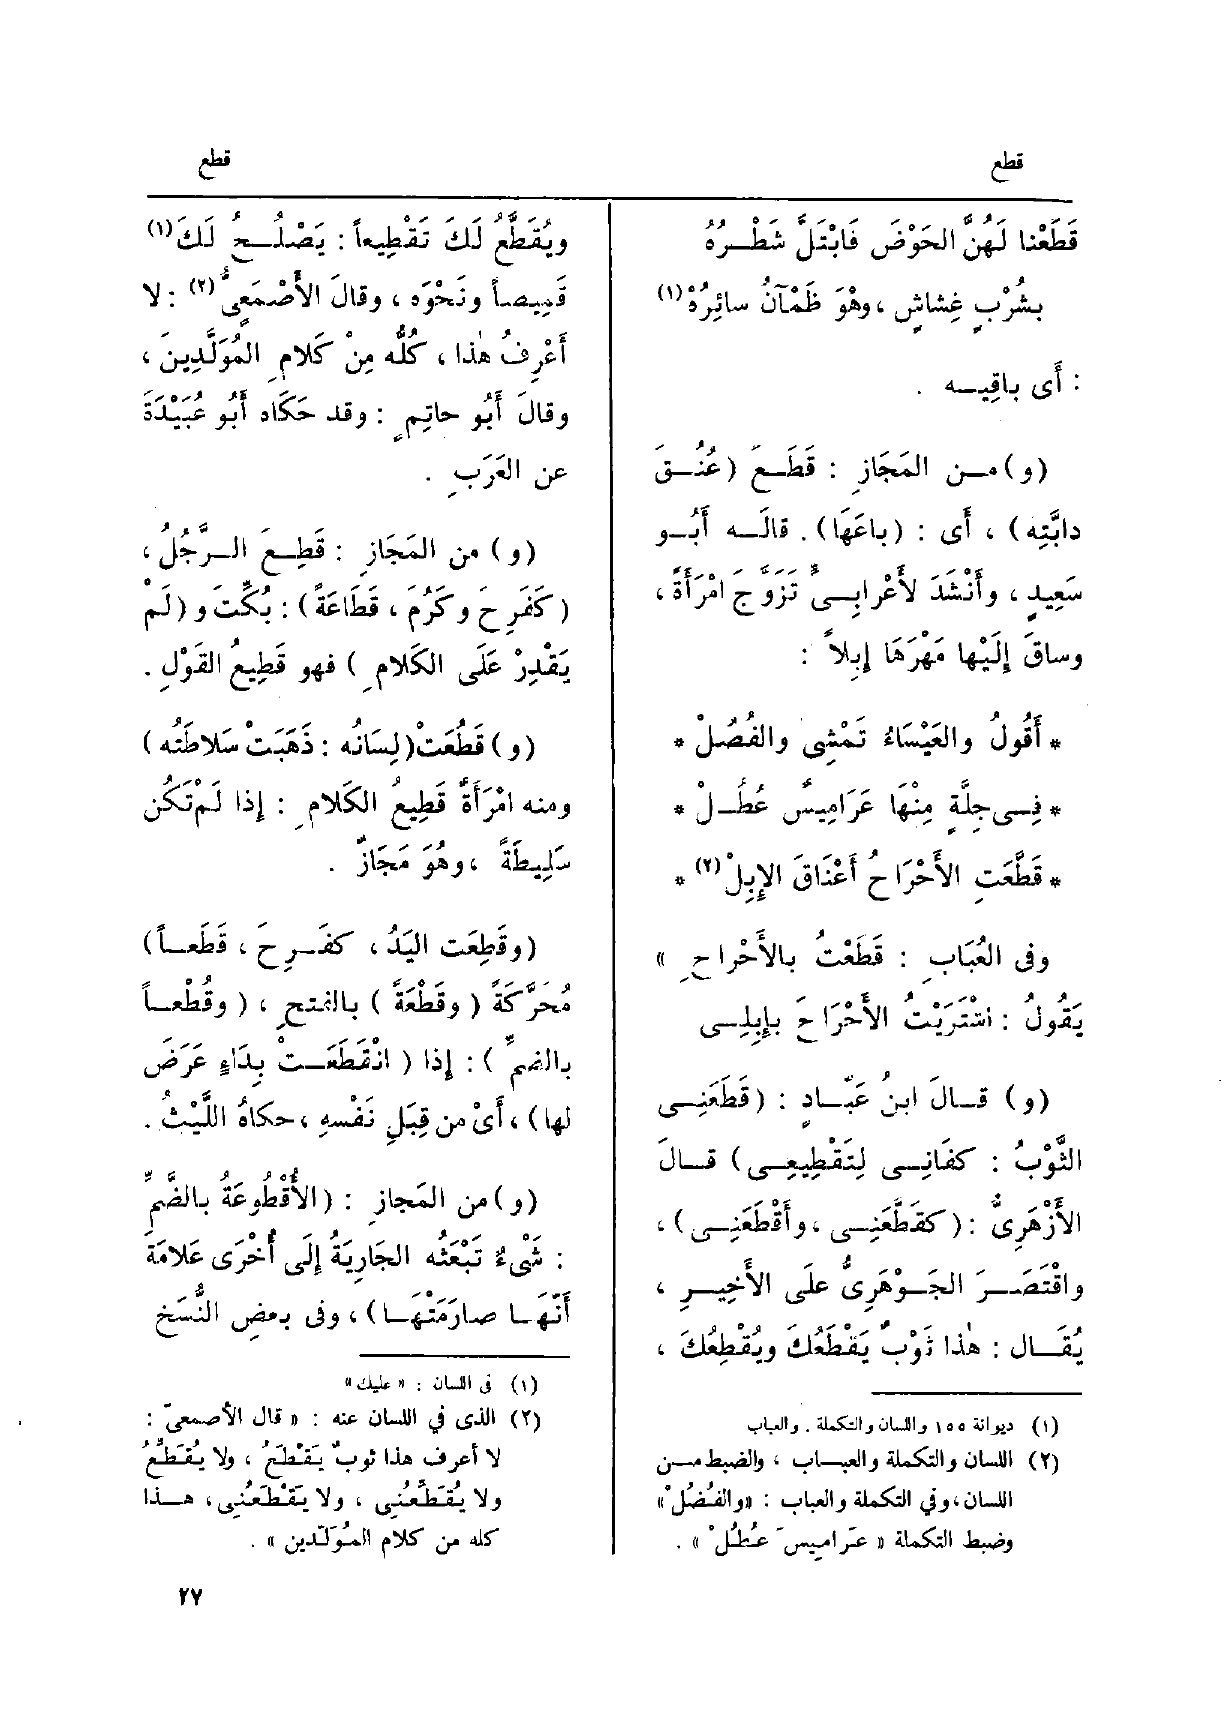 قطع
قطع
قَطَعْنا لَهُنَّ الحَوْضَ فَابْتَلَّ شَطْرُهُ
بشُرْبٍ غِشاشٍ ، وهْوَ ظَمْآنُ سائِرُهْ (١)
: أَى باقِيه .
(و) من المَجَازِ : قَطَعَ (عُنُقَ
دابَّتِه) ، أَى : (باعَهَا) . قالَه أَبُو
سَعِيدٍ ، وأَنْشَدَ لأَعْرابِىٍّ تَزَوَّجَ امْرَأَةً ،
وساقَ إِلَيْها مَهْرَهَا إِبلاً :
* أَقُولُ والعَيْسَاءُ تَمْشِى والفُصُلْ *
* فِى جِلَّةٍ مِنْهَا عَرَامِيسٌ عُطُلْ *
* قَطَّعَتِ الأَحْرَاحُ أَعْنَاقَ الإِبِلْ (٢) *
وفى العُبَابِ : قَطَعْتُ بالأَحْراحِ »
يَقُولُ : اشْتَرَيْتُ الأَحْرَاحَ بإِبِلِى
(و) قالَ ابنُ عَبّادٍ : (قَطَعَنِى
الثَّوْبُ : كفَانِى لِتَقْطِيعِى) قالَ
الأَزْهَرِىُّ : (كقَطَّعَنِى ، وأَقْطَعَنِى) ،
واقْتَصَرَ الجَوْهَرِىُّ علَى الأَخِيرِ ،
يُقَال : هٰذا ثَوْبٌ يَقْطَعُكَ ويُقْطِعُكَ ،
(١) ديوانة ١٥٥ واللسان والتكملة . والعباب
(٢) اللسان والتكملة والعباب ، والضبط من
اللسان ، وفي التكملة والعباب : «والفُضُلْ»
وضبط التكملة « عَرَاميسَ عُطُلْ » .
ويُقَطِّعُ لَكَ تَقْطِيعاً : يَصْلُحُ لَكَ (١)
قَمِيصاً ونَحْوَه ، وقالَ الأَصْمَعِىُّ (٢) : لا
أَعْرِفُ هٰذا ، كُلُّه مِنْ كَلامِ المُوَلَّدِينَ ،
وقالَ أَبُو حاتِمٍ : وقد حَكَاه أَبُو عُبَيْدَةَ
عن العَرَبِ .
(و) من المَجَازِ : قَطِعَ الرَّجُلُ ،
(كفَرِحَ وكَرُمَ ، قَطَاعَةً) : بُكِّتَ و (لَمْ
يَقْدِرْ عَلَى الكَلامِ ) فهو قَطِيعُ القَوْلِ .
(و) قَطُعَتْ (لِسَانُه : ذَهَبَتْ سَلاطَتُه)
ومنه امْرَأَةٌ قَطِيعُ الكَلامِ : إِذا لَمْ تَكُن
سَلِيطَةً ، وهُوَ مَجَازٌ .
(وقَطِعَت اليَدُ ، كفَرِحَ ، قَطَعاً)
مُحَرَّكَةً ( وقَطْعَةً ) بالفتحِ ، ( وقُطْعاً
بالضمِّ ) : إِذا ( انْقَطَعَتْ بِدَاءٍ عَرَضَ
لها) ، أَىْ من قِبَلِ نَفْسِهِ ، حكاهُ اللَّيْثُ .
(و) من المَجازِ : (الأُقْطُوعَةُ بالضَّمِّ
: شَىْءٌ تَبْعَثُه الجَارِيَةُ إِلَى أُخْرَى عَلامَةَ
أَنَّهَا صارَمَتْهَا) ، وفى بعضِ النُّسَخِ
(١) فى اللسان : « عليك »
(٢) الذى في اللسان عنه : « قال الأصمعىّ :
لا أعرف هذا ثوبٌ يَقْطَعُ ، ولا يُقَطِّعُ
ولا يُقَطِّعُنِى ، ولا يَقْطَعُنِى ، هذا
كله من كلام المُوَلَّدين » .
٢٧